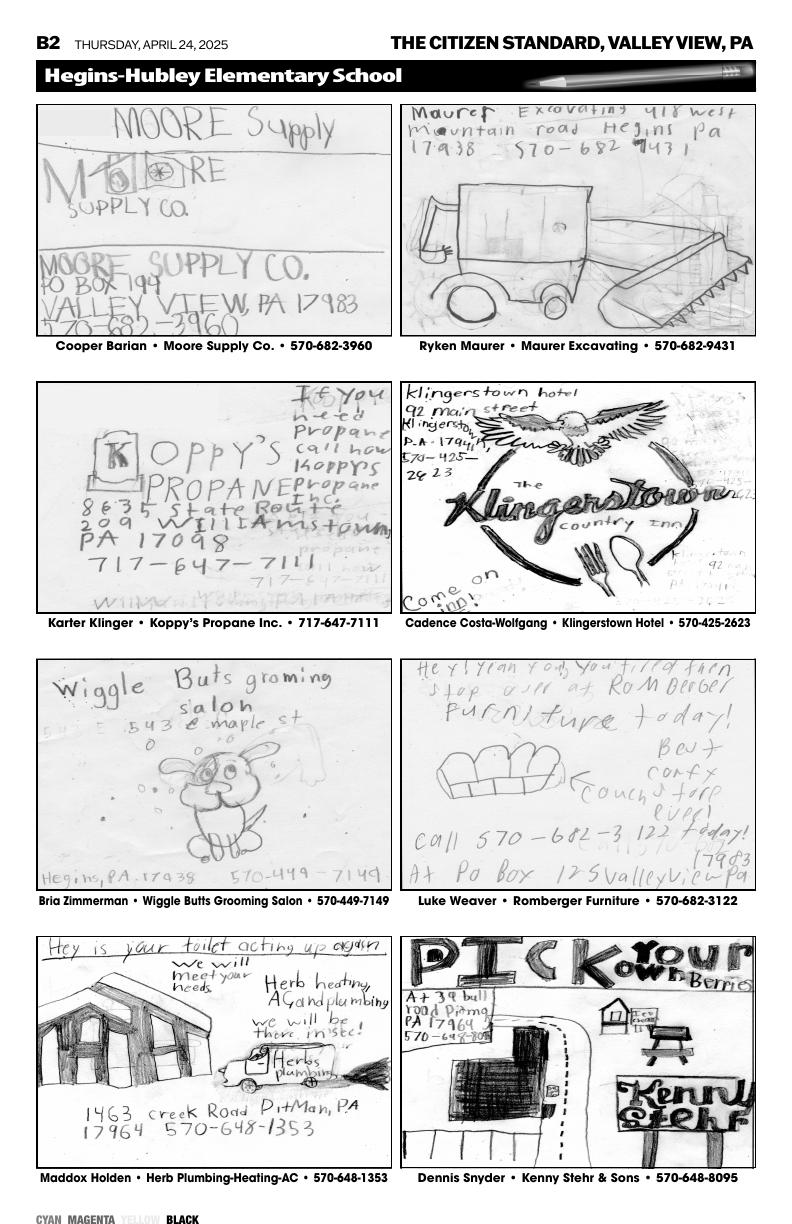 B2 THURSDAY, APRIL 24, 2025
THE CITIZEN STANDARD, VALLEY VIEW, PA
Hegins-Hubley Elementary School
MOORE Supply
MOORE
SUPPLY CO.
MOORE SUPPLY CO.
PO BOX 194
VALLEY VIEW, PA 17983
570-682-3960
Cooper Barian • Moore Supply Co. • 570-682-3960
Maurer Excavating 418 west
mountain road Hegins pa
17938 570-682 9431
Ryken Maurer • Maurer Excavating • 570-682-9431
If You
need
Propane
call now
Koppy's
Propane
Inc.
KOPPY'S
PROPANE
8635 State Route
209 WIllIAmstown,
PA 17098
717-647-7111
Karter Klinger • Koppy's Propane Inc. • 717-647-7111
Klingerstown hotel
92 main street
Klingerstown
P.A. 17941,
570-425-
2623
The
Klingerstown
country Inn
Come on
inn!
Cadence Costa-Wolfgang • Klingerstown Hotel • 570-425-2623
Wiggle Buts groming
salon
543 e maple st
Hegins, PA. 17938 570-449-7149
Bria Zimmerman • Wiggle Butts Grooming Salon • 570-449-7149
Hey! Yeah you, you tired then
stop over at RoMBerger
Furniture today!
Best
comfy
couch store
ever!
call 570-682-3122 today!
17983
At Po Box 125 valley view Pa
Luke Weaver • Romberger Furniture • 570-682-3122
Hey is your toilet acting up again
we will
meet your
needs
Herb heating,
AC and plumbing
we will be
there in sec!
Herbs
plumbing
1463 creek Road PitMan, PA
17964 570-648-1353
Maddox Holden • Herb Plumbing-Heating-AC • 570-648-1353
PICK Your
own Berries
At 39 bull
road Pitman
PA 17964
570-648-809
Kenny
Stehr
Dennis Snyder • Kenny Stehr & Sons • 570-648-8095
CYAN MAGENTA YELLOW BLACK